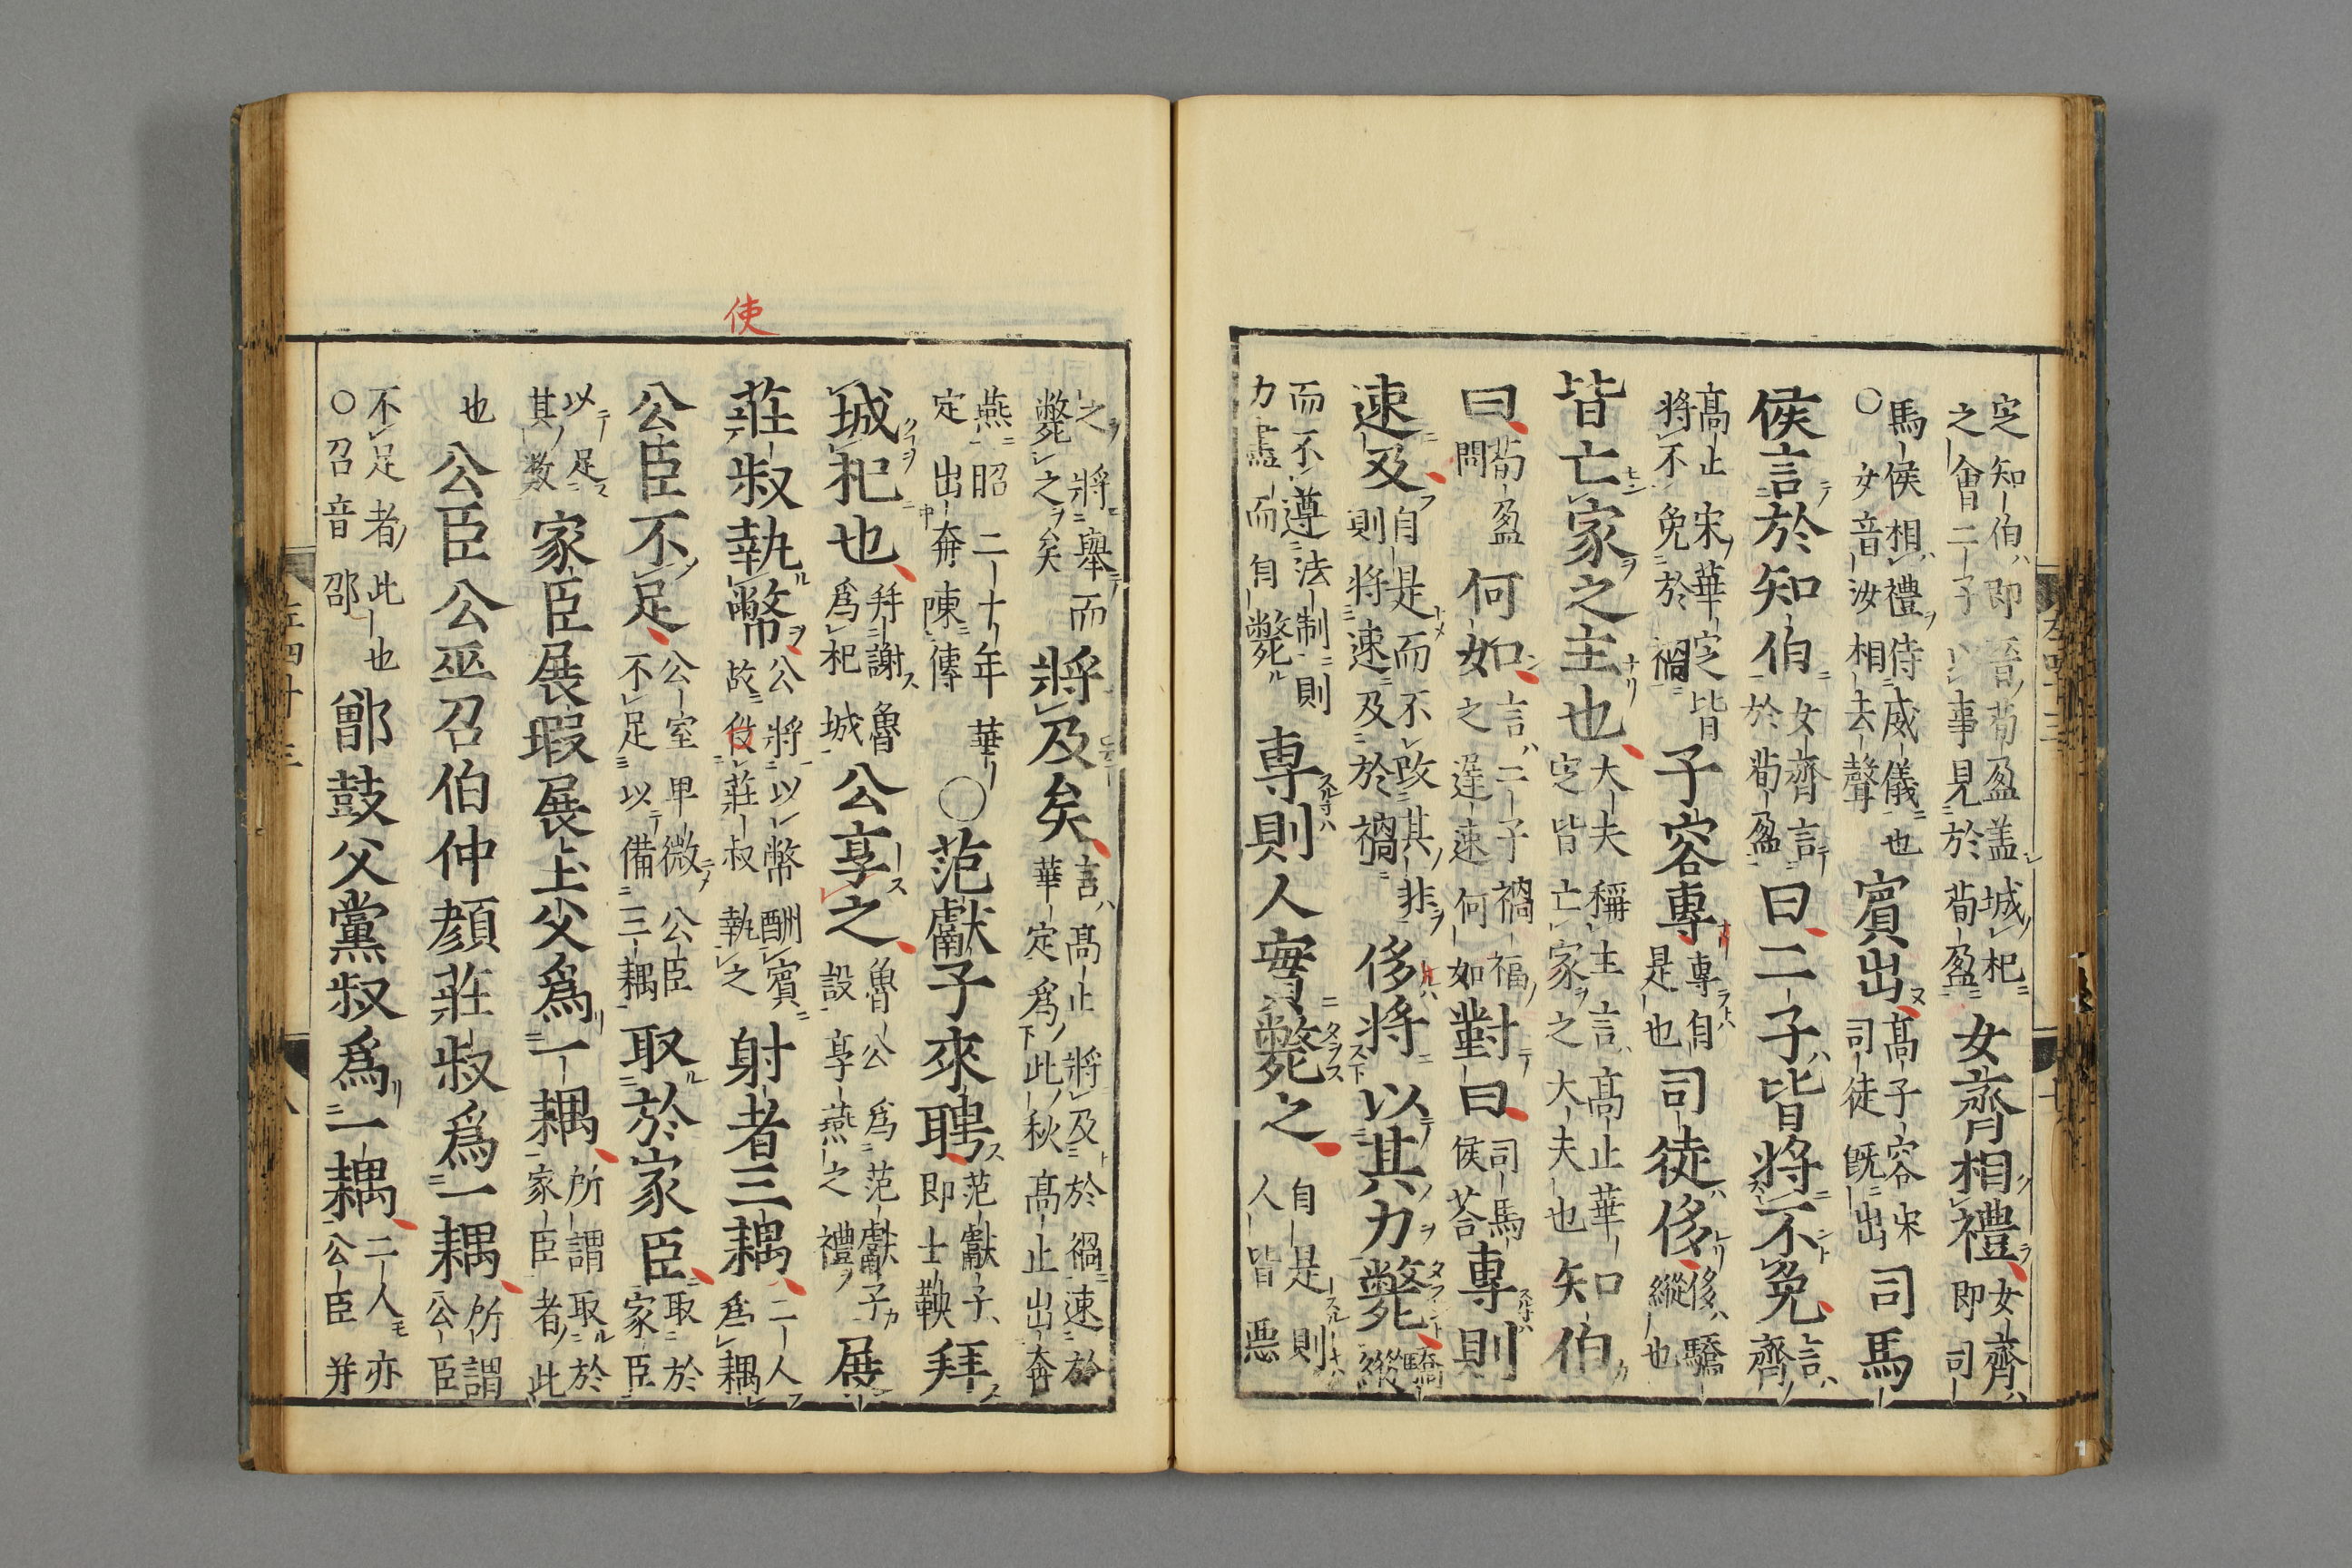 定知伯即晉荀盈盖城杞
之會二子以事見於荀盈女齊相禮女齊
即司
馬侯相禮侍威儀也
○女音汝相去聲賓出高子容宋
司徒既出司馬
侯言於知伯女齊言
於荀盈曰二子皆將不免言
齊
高止宋華定皆
將不免於禍子容專專自
是也司徒侈侈驕
縱也
皆亡家之主也大夫稱主言高止華
定皆亡家之大夫也知伯
曰荀盈
問何如言二子禍福
之遅速何如對曰司馬
侯荅專則
速及自是而不改其非
則將速及於禍侈將以其力斃驕
縱
而不遵法制則
力盡而自斃專則人實斃之自是則
人皆惡
之將舉而
斃之矣將及矣言高止將及於禍速於
華定爲此秋高止出奔
燕昭二十年華
定出奔陳傳○范獻子來聘范獻子
即士鞅拜
城杞也拜謝魯
爲杞城公享之魯公爲范獻子
設享燕之禮展
莊叔執幣公將以幣酬賓
故伎莊叔執之射者三耦二人
爲耦
公臣不足公室卑微公臣
不足以備三耦取於家臣取於
家臣
以足
其数家臣展瑕展玉父爲一耦所謂取於
家臣者此
也公臣公巫召伯仲顔莊叔爲一耦所謂
公臣
不足者此也
○召音邵鄫鼓父黨叔爲一耦二人亦
公臣并
使
左四十三
七
左四十三
八